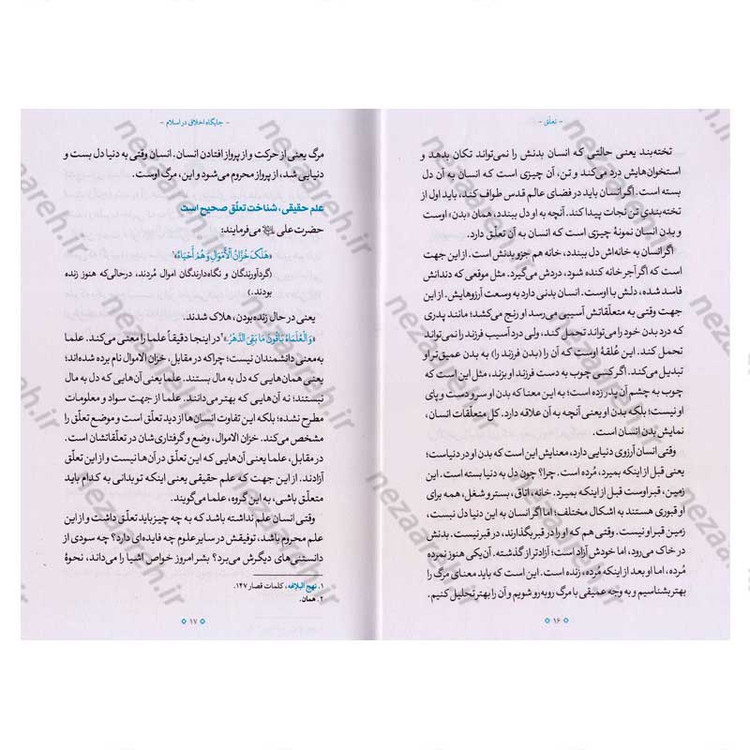 - تعلّق -
تخته‌بند یعنی حالتی که انسان بدنش را نمی‌تواند تکان بدهد و
استخوان‌هایش درد می‌کند و تن، آن چیزی است که انسان به آن دل
بسته است. اگر انسان باید در فضای عالم قدس طواف کند، باید اول از
تخته‌بندی تن نجات پیدا کند. آنچه به او دل ببندد، همان «بدن» اوست
و بدن انسان نمونهٔ چیزی است که انسان به آن تعلّق دارد.
اگر انسان به خانه‌اش دل ببندد، خانه هم جزو بدنش است. از این جهت
است که اگر آجر خانه کنده شود، دردش می‌گیرد. مثل موقعی که دندانش
فاسد شده، دلش با اوست. انسان بدنی دارد به وسعت آرزوهایش. از این
جهت وقتی به متعلّقاتش آسیبی می‌رسد او رنج می‌کشد؛ مانند پدری
که درد بدن خود را می‌تواند تحمل کند، ولی درد آسیب فرزند را نمی‌تواند
تحمل کند. این عُلقهٔ اوست که آن را (بدن فرزند را) به بدن عمیق‌تر او
تبدیل می‌کند. اگر کسی چوب به دست فرزند او بزند، مثل این است که
چوب به چشم آن پدر زده است؛ به این معنا که بدن او سر و دست و پای
او نیست؛ بلکه بدن او یعنی آنچه به آن علاقه دارد. کل متعلّقات انسان،
نمایش بدن انسان است.
وقتی انسان آرزوی دنیایی دارد، معنایش این است که بدن او در دنیاست؛
یعنی قبل از اینکه بمیرد، مُرده است. چرا؟ چون دل به دنیا بسته است. این
زمین، قبر اوست قبل از اینکه بمیرد. خانه، اتاق، بستر و شغل، همه برای
او قبوری هستند به اشکال مختلف؛ اما اگر انسان به این دنیا دل نبست،
زمین قبر او نیست. وقتی هم که او را در قبر بگذارند، در قبر نیست. بدنش
در خاک می‌رود، اما خودش آزاد است؛ آزادتر از گذشته. آن یکی هنوز نمرده
مُرده، اما او بعد از اینکه مُرده، زنده است. این است که باید معنای مرگ را
بهتر بشناسیم و به وجه عمیقی با مرگ روبه‌رو شویم و آن را بهتر تحلیل کنیم.
۱۶
- جایگاه اخلاقی در اسلام -
مرگ یعنی از حرکت و از پرواز افتادن انسان. انسان وقتی به دنیا دل بست و
دنیایی شد، از پرواز محروم می‌شود و این، مرگ اوست.
علم حقیقی، شناخت تعلّق صحیح است
حضرت علی می‌فرمایند:
«هَلَکَ خُزَّانُ الْأَمْوَالِ وَ هُمْ أَحْیَاءٌ»
(گردآورندگان و نگاه‌دارندگان اموال مُردند، درحالی‌که هنوز زنده
بودند.)
یعنی در حال زنده بودن، هلاک شدند.
«وَ الْعُلَمَاءُ بَاقُونَ مَا بَقِیَ الدَّهْرُ.» در اینجا دقیقاً علما را معنی می‌کند. علما
به معنی دانشمندان نیست؛ چراکه در مقابل، خزان الاموال نام برده شده‌اند؛
یعنی همان‌هایی که دل به مال بستند. علما یعنی آن‌هایی که دل به مال
نبستند؛ نه آن‌هایی که بهتر می‌دانند. علما از جهت سواد و معلومات
مطرح نشده؛ بلکه این تفاوت انسان‌ها از دید تعلّق است و موضع تعلّق را
مشخص می‌کند. خزان الاموال، وضع و گرفتاری‌شان در تعلّقاتشان است.
در مقابل، علما یعنی آن‌هایی که این تعلّق در آن‌ها نیست و از این تعلّق
آزادند. از این جهت که علم حقیقی یعنی اینکه تو بدانی به کدام باید
متعلّق باشی، به این گروه، علما می‌گویند.
وقتی انسان علم نداشته باشد که به چه چیز باید تعلّق داشت و از این
علم محروم باشد، توفیقش در سایر علوم چه فایده‌ای دارد؟ چه سودی از
دانستنی‌های دیگرش می‌برد؟ بشر امروز خواص اشیا را می‌داند، نحوهٔ
۱. نهج البلاغه، کلمات قصار ۱۴۷.
۲. همان.
۱۷
nezaareh.ir